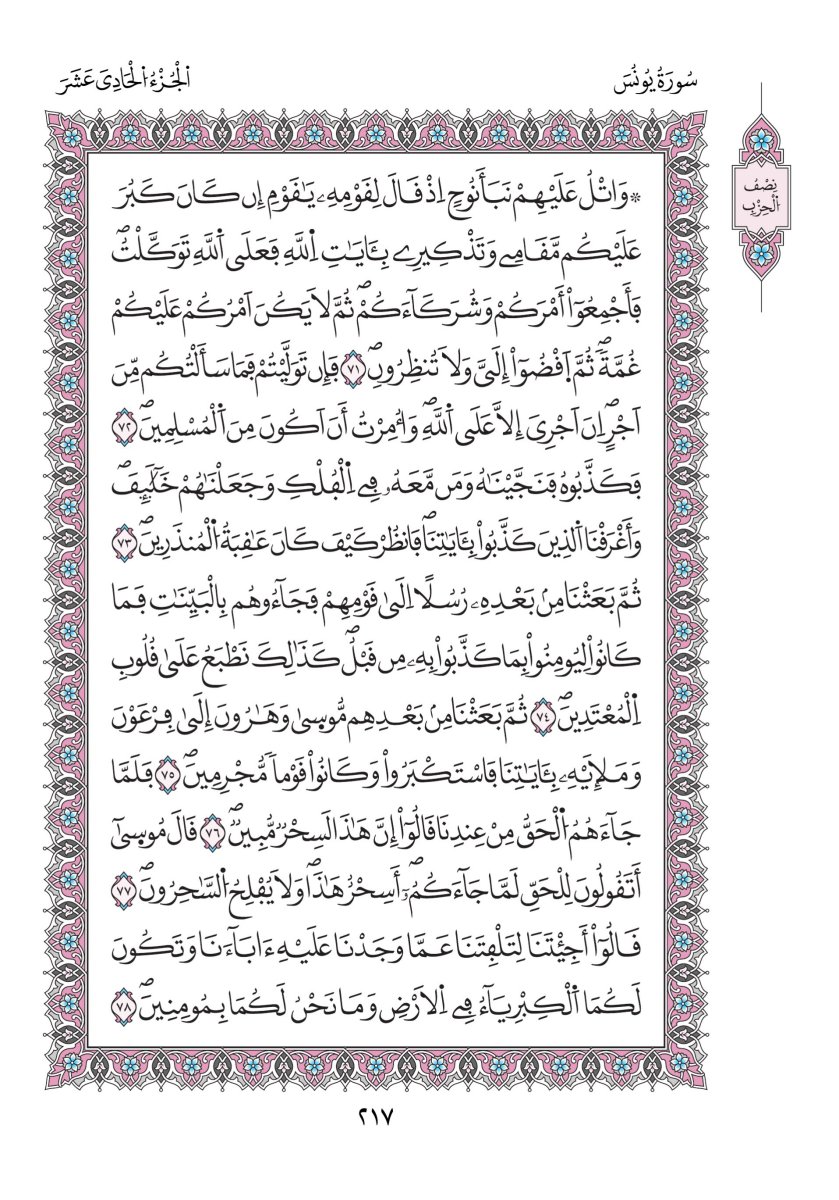 سُورَةُ يُونُسَ
اَ۬لْجُزْءُ اُ۬لْحَادِيَ عَشَرَ
نِصْفُ
اَ۬لْحِزْبِ
۞ وَاتْلُ عَلَيْهِمْ نَبَأَ نُوحٍ اِذْ قَالَ لِقَوْمِهِۦ يَٰقَوْمِ إِن كَانَ كَبُرَ
عَلَيْكُم مَّقَامِے وَتَذْكِيرِے بِـَٔايَٰتِ اِ۬للَّهِ فَعَلَى اَ۬للَّهِ تَوَكَّلْتُۖ
فَأَجْمِعُوٓاْ أَمْرَكُمْ وَشُرَكَآءَكُمْۖ ثُمَّ لَا يَكُنَ اَمْرُكُمْ عَلَيْكُمْ
غُمَّةٗۖ ثُمَّ اَ۪قْضُوٓاْ إِلَيَّ وَلَا تُنظِرُونِۖ ٧١ فَإِن تَوَلَّيْتُمْ فَمَا سَأَلْتُكُم مِّنَ
اَجْرٍۖ اِنَ اَجْرِيَ إِلَّا عَلَى اَ۬للَّهِۖ وَأُمِرْتُ أَنَ اَكُونَ مِنَ اَ۬لْمُسْلِمِينَۖ ٧٢
فَكَذَّبُوهُ فَنَجَّيْنَٰهُ وَمَن مَّعَهُۥ فِے اِ۬لْفُلْكِ وَجَعَلْنَٰهُمْ خَلَٰٓئِفَۖ
وَأَغْرَقْنَا اَ۬لذِينَ كَذَّبُواْ بِـَٔايَٰتِنَاۖ فَانظُرْ كَيْفَ كَانَ عَٰقِبَةُ اُ۬لْمُنذَرِينَۖ ٧٣
ثُمَّ بَعَثْنَا مِنۢ بَعْدِهِۦ رُسُلًا اِلَىٰ قَوْمِهِمْ فَجَآءُوهُم بِالْبَيِّنَٰتِ فَمَا
كَانُواْ لِيُومِنُواْ بِمَا كَذَّبُواْ بِهِۦ مِن قَبْلُۖ كَذَٰلِكَ نَطْبَعُ عَلَىٰ قُلُوبِ
اِ۬لْمُعْتَدِينَۖ ٧٤ ثُمَّ بَعَثْنَا مِنۢ بَعْدِهِم مُّوسٜىٰ وَهَٰرُونَ إِلَىٰ فِرْعَوْنَ
وَمَلَإِيْهِۦ بِـَٔايَٰتِنَا فَاسْتَكْبَرُواْ وَكَانُواْ قَوْماٗ مُّجْرِمِينَۖ ٧٥ فَلَمَّا
جَآءَهُمُ اُ۬لْحَقُّ مِنْ عِندِنَا قَالُوٓاْ إِنَّ هَٰذَا لَسِحْرٞ مُّبِينٞۖ ٧٦ قَالَ مُوسٜىٰٓ
أَتَقُولُونَ لِلْحَقِّ لَمَّا جَآءَكُمُۥٓۖ أَسِحْرٌ هَٰذَاۖ وَلَا يُفْلِحُ اُ۬لسَّٰحِرُونَۖ ٧٧
قَالُوٓاْ أَجِئْتَنَا لِتَلْفِتَنَا عَمَّا وَجَدْنَا عَلَيْهِ ءَابَآءَنَا وَتَكُونَ
لَكُمَا اَ۬لْكِبْرِيَآءُ فِے اِ۬لَارْضِ وَمَا نَحْنُ لَكُمَا بِمُومِنِينَۖ ٧٨
٢١٧